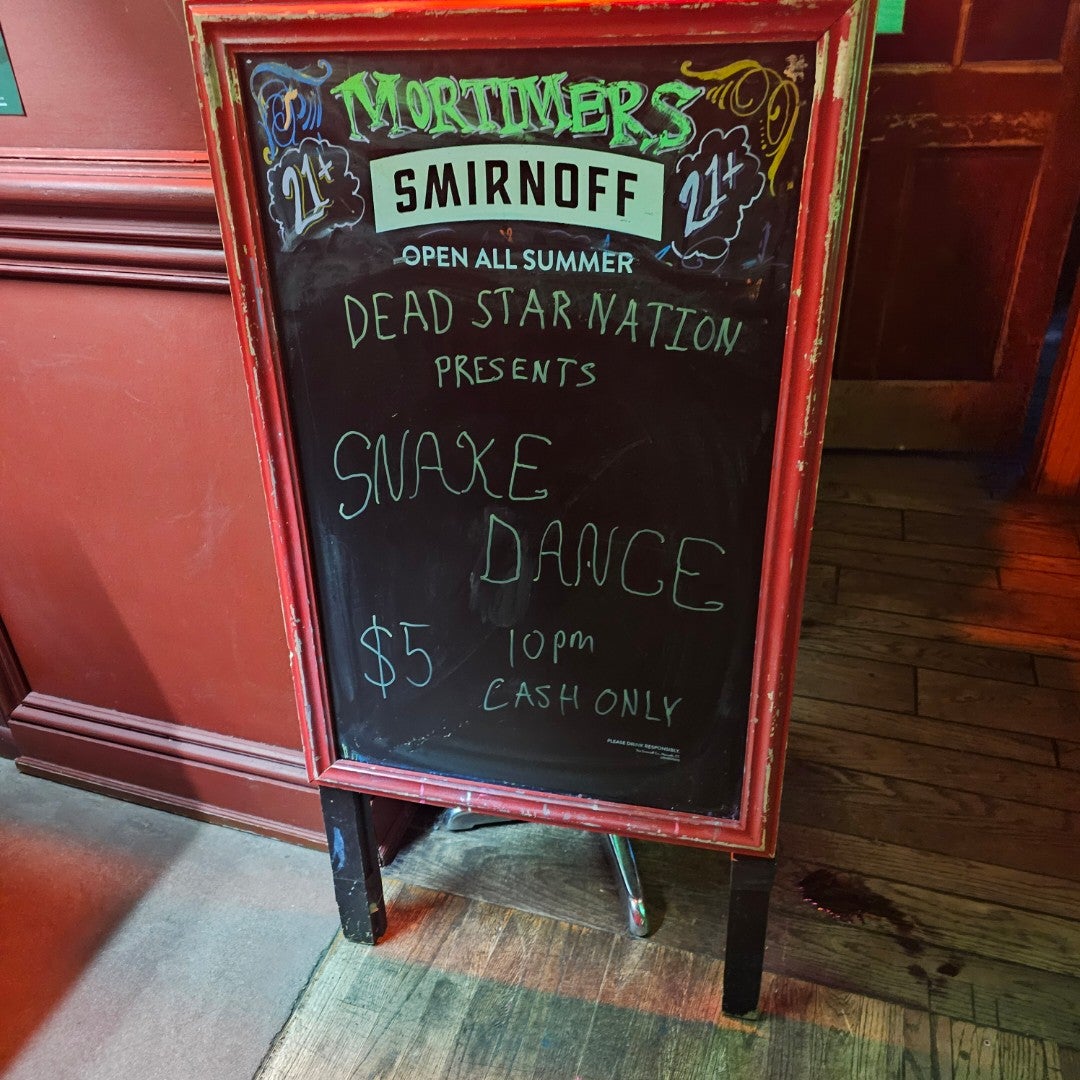 MORTIMERS
21+
SMIRNOFF
21+
OPEN ALL SUMMER
DEAD STAR NATION
PRESENTS
SNAKE
DANCE
$5
10pm
CASH ONLY
PLEASE DRINK RESPONSIBLY.